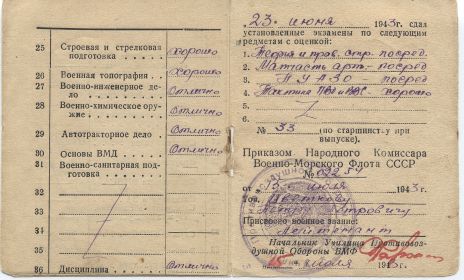 25 Строевая и стрелковая хорошо
подготовка
26 Военная топография хорошо
27 Военно-инженерное де- Отлично
ло
28 Военно-химическое ору- Отлично
жие
29 Автотракторное дело Отлично
30 Основы ВМД Отлично
31 Военно-санитарная под-
готовка
32
33
34
35
36 Дисциплина Отлично
23 июня 1943г. сдал
установленные экзамены по следующим
предметам с оценкой:
1. Теория и прав. стр. посред.
2. Матчасть арт. посред
3. ПУАЗО посред
4. Тактика хорошо
5.
6.
№ 33 (по старшинству при
выпуске).
Приказом Народного Комиссара
Военно-Морского Флота СССР
№
от 15 июля 1943г.
тов. Цветкову
Петровичу
Присвоено военное звание:
Лейтенант
Начальник Училища Противовоз-
душной Обороны ВМФ
июля 1943г.